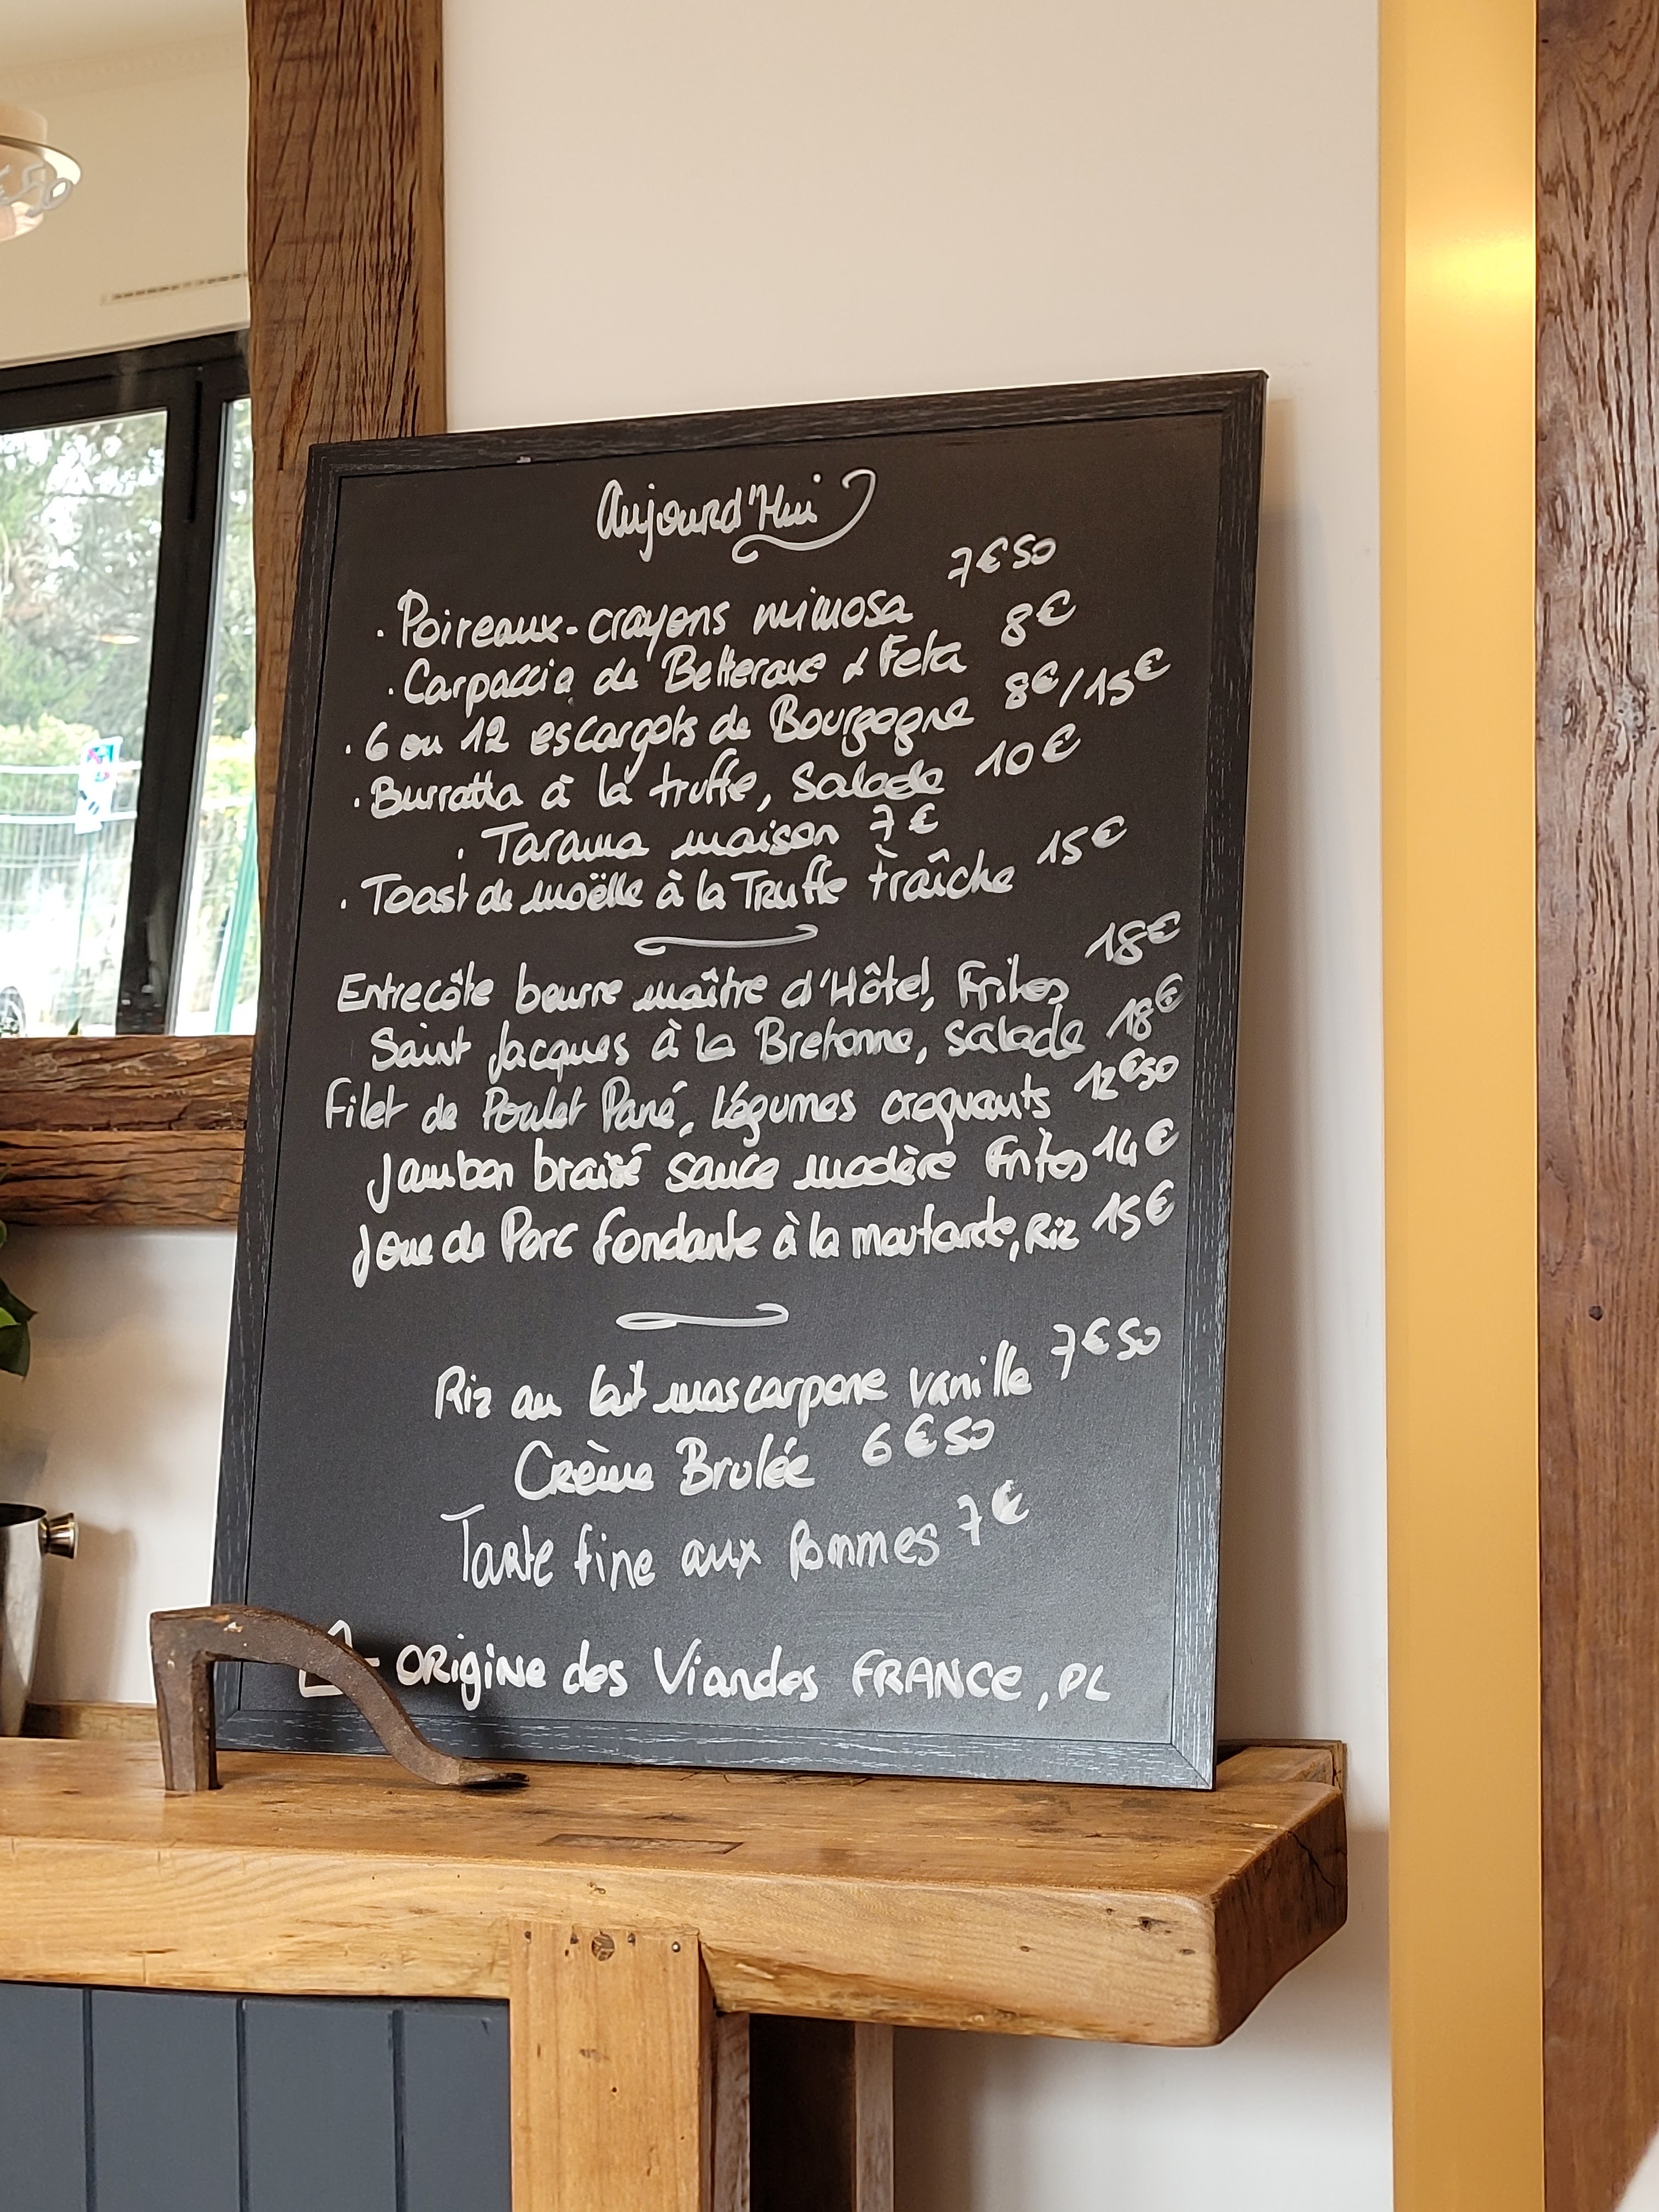 Aujourd'Hui
7€50
· Poireaux-crayons mimosa
· Carpaccio de Betterave & Feta 8€
· 6 ou 12 escargots de Bourgogne 8€/15€
· Burratta à la truffe, Salade 10€
· Tarama maison 7€
· Toast de moëlle à la Truffe fraîche 15€
Entrecôte beurre maître d'Hôtel, Frites 18€
Saint Jacques à la Bretonne, Salade 18€
Filet de Poulet Pané, Légumes croquants 12€50
Jambon braisé sauce madère Frites 14€
Joue de Porc fondante à la moutarde, Riz 15€
Riz au lait mascarpone vanille 7€50
Crème Brulée 6€50
Tarte fine aux Pommes 7€
- ORigiNe des Viandes FRANCe, PL